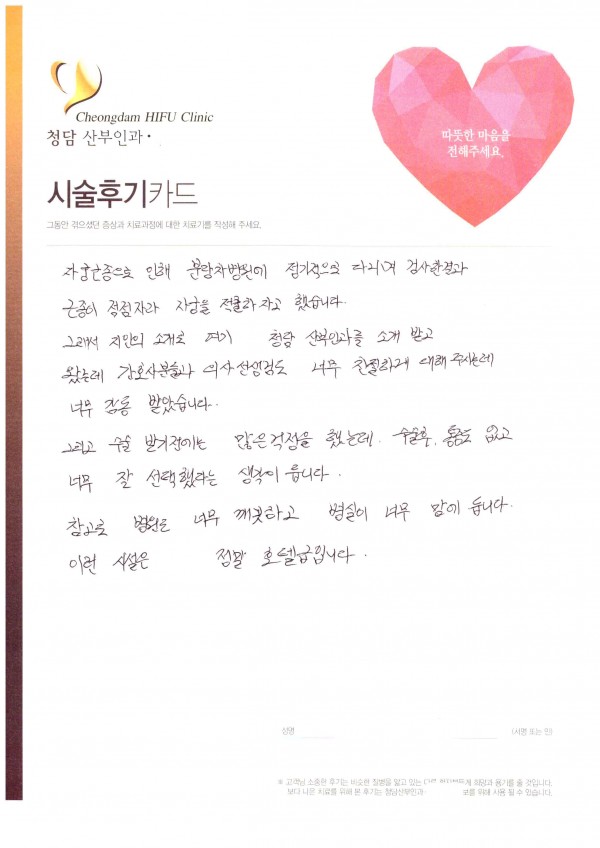 Cheongdam HIFU Clinic
청담 산부인과·
따뜻한 마음을
전해주세요.
시술후기카드
그동안 겪으셨던 증상과 치료과정에 대한 치료기를 작성해 주세요.
자궁근종으로 인해 분당차병원에 정기적으로 다니며 검사한결과
근종이 점점자라 자궁을 적출하자고 했습니다.
그래서 지인의 소개로 여기 청담 산부인과를 소개 받고
왔는데 간호사분들과 의사선생검도 너무 친절하게 대해주시는데
너무 감동 받았습니다.
그리고 수술 받기전에는 많은걱정을 했는데. 수술후, 통증도 없고
너무 잘 선택했다는 생각이 듭니다.
참고로 병원도 너무 깨끗하고 병실이 너무 맘에 듭니다.
이런 시설은 정말 호텔급입니다.
성명
(서명 또는 인)
※ 고객님 소중한 후기는 비슷한 질병을 앓고 있는 희망과 용기를 줄 것입니다.
보다 나은 치료를 위해 본 후기는 청담산부인과· 보를 위해 사용 될 수 있습니다.